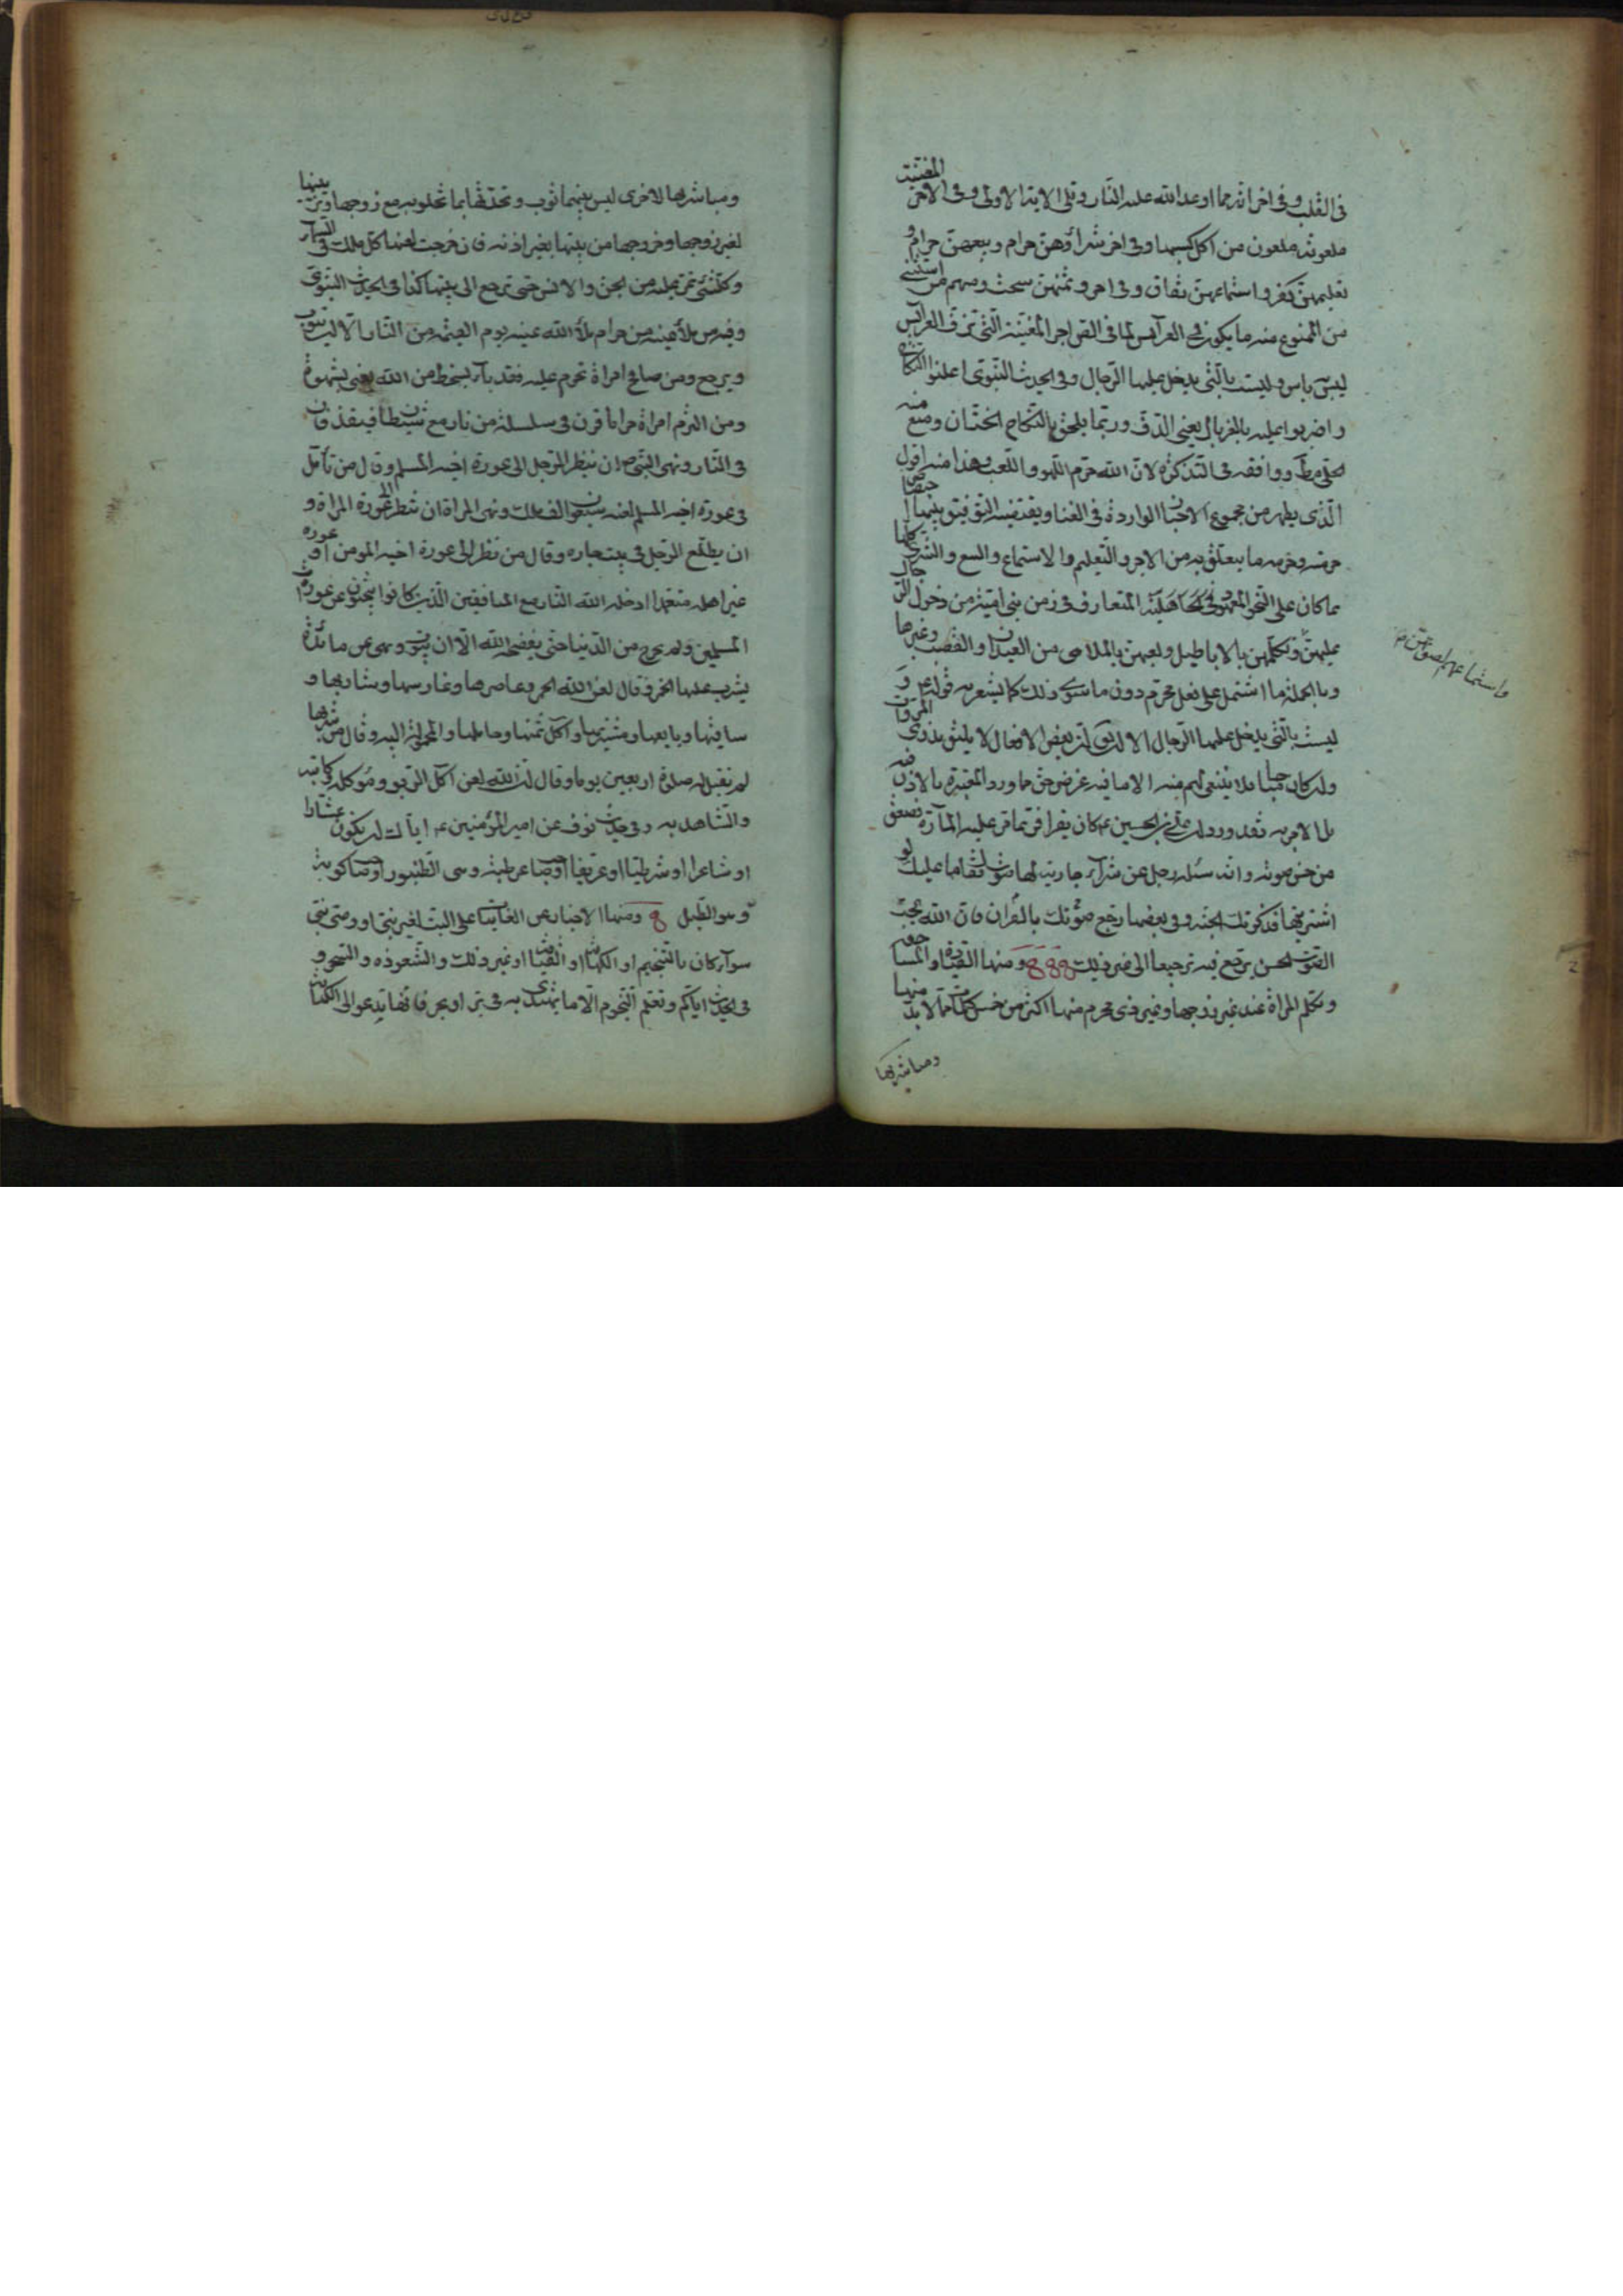 في القلب وفي اخر انه مما اوعد الله عليه النار وتلى الاية الاولى وفي الاخر المغنية
ملعونة ملعون من اكل كسبها وفي اخر شراؤهن حرام وبيعهن حرام و
تعليمهن كفر واستماعهن نفاق وفي اخر وثمنهن سحت ومنهم من استثنى
من الممنوع منه ما يكون في العرايس لما في اجر المغنية التي تزف العرايس
ليس به باس وليست بالتي يدخل عليها الرجال وفي الحديث النبوي اعلنوا النكاح
واضربوا عليه بالغربال يعني الدف وربما يلحق بالنكاح الختان ومنع منه
الحلي مط ووافقه في التذكرة لان الله حرم اللهو واللعب وهذا منه اقول
الذي يظهر من مجموع الاخبار الواردة في الغنا ويقتضيه التوفيق بينها اختصاص
حرمته وحرمة ما يتعلق به من الاجر والتعليم والاستماع والبيع والشرى كلها
بما كان على النحو المعهود المتعارف في زمن بني امية من دخول الرجال
عليهن وتكلمهن بالاباطيل ولعبهن بالملاهي من العيدان والقصب وغيرها
وبالجملة ما اشتمل على فعل محرم دون ما سوى ذلك كما يشعر به قوله ع و
ليست بالتي يدخل عليها الرجال الا ان بعض الافعال لا يليق بذوي المروات
وان كان مباحا فلا ينبغي لهم منه الا ما فيه غرض حق مما ورد المعتبرة بالاذن فيه
بل الامر به فقد ورد ان علي بن الحسين ع كان يقرا فربما مر عليه المارة فصعق
من حسن صوته وانه سئله رجل عن شراء جارية لها صوت فقال ما عليك لو
اشتريتها فذكرتك الجنة وفي بعضها رجع صوتك بالقران فان الله يحب
الصوت الحسن يرجع فيه ترجيعا الى غير ذلك ومنها القيادة والمساحقة
وتكلم المراة عند غير زوجها وغير ذي محرم منها اكثر من خمس كلمات مما لابد منها
ومباشرتها
واستماعهم لصوتهن م
ومباشرتها الاخرى ليس بينهما ثوب وتحدثها بما تخلو به مع زوجها وتزينها
لغير زوجها وخروجها من بيتها بغير اذنه فان خرجت لعنها كل ملك في السماء
وكل شئ تمر عليه من الجن والانس حتى ترجع الى بيتها كذا في الحديث النبوي
وفيه من ملأ عينه من حرام ملأ الله عينه يوم القيمة من النار الا ان يتوب
ويرجع ومن صافح امراة تحرم عليه فقد باء بسخط من الله يعني بشهوة
ومن التزم امراة حراما قرن في سلسلة من نار مع شيطان فيقذفان
في النار ونهى النبي ص ان ينظر الرجل الى عورة اخيه المسلم وقال من تامل
في عورة اخيه المسلم لعنه سبعون الف ملك ونهى المراة ان تنظر الى عورة المراة و
ان يطلع الرجل في بيت جاره وقال من نظر الى عورة اخيه المومن او عورة
غير اهله متعمدا ادخله الله النار مع المنافقين الذين كانوا يبحثون عن عورات
المسلمين ولم يخرج من الدنيا حتى يفضحه الله الا ان يتوب ونهى عن مائدة
يشرب عليها الخمر وقال لعن الله الخمر وعاصرها وغارسها وشاربها و
ساقيها وبايعها ومشتريها واكل ثمنها وحاملها والمحمولة اليه وقال من شربها
لم تقبل له صلوة اربعين يوما وقال ان الله لعن اكل الربو وموكله وكاتبه
والشاهد به وفي حديث نوف عن امير المؤمنين ع اياك ان تكون عشارا
او شاعرا او شرطيا او عريفا او صاحب عرطبة وهي الطنبور او صاحب كوبة
وهو الطبل ومنها الاخبار عن الغايبات على البت لغير نبي او وصي نبي
سواء كان بالتنجيم او الكهانة او القيافة او غير ذلك والشعوذه والسحر و
في الحديث اياكم وتعلم النجوم الا ما يهتدى به في بر او بحر فانها تدعو الى الكهانة